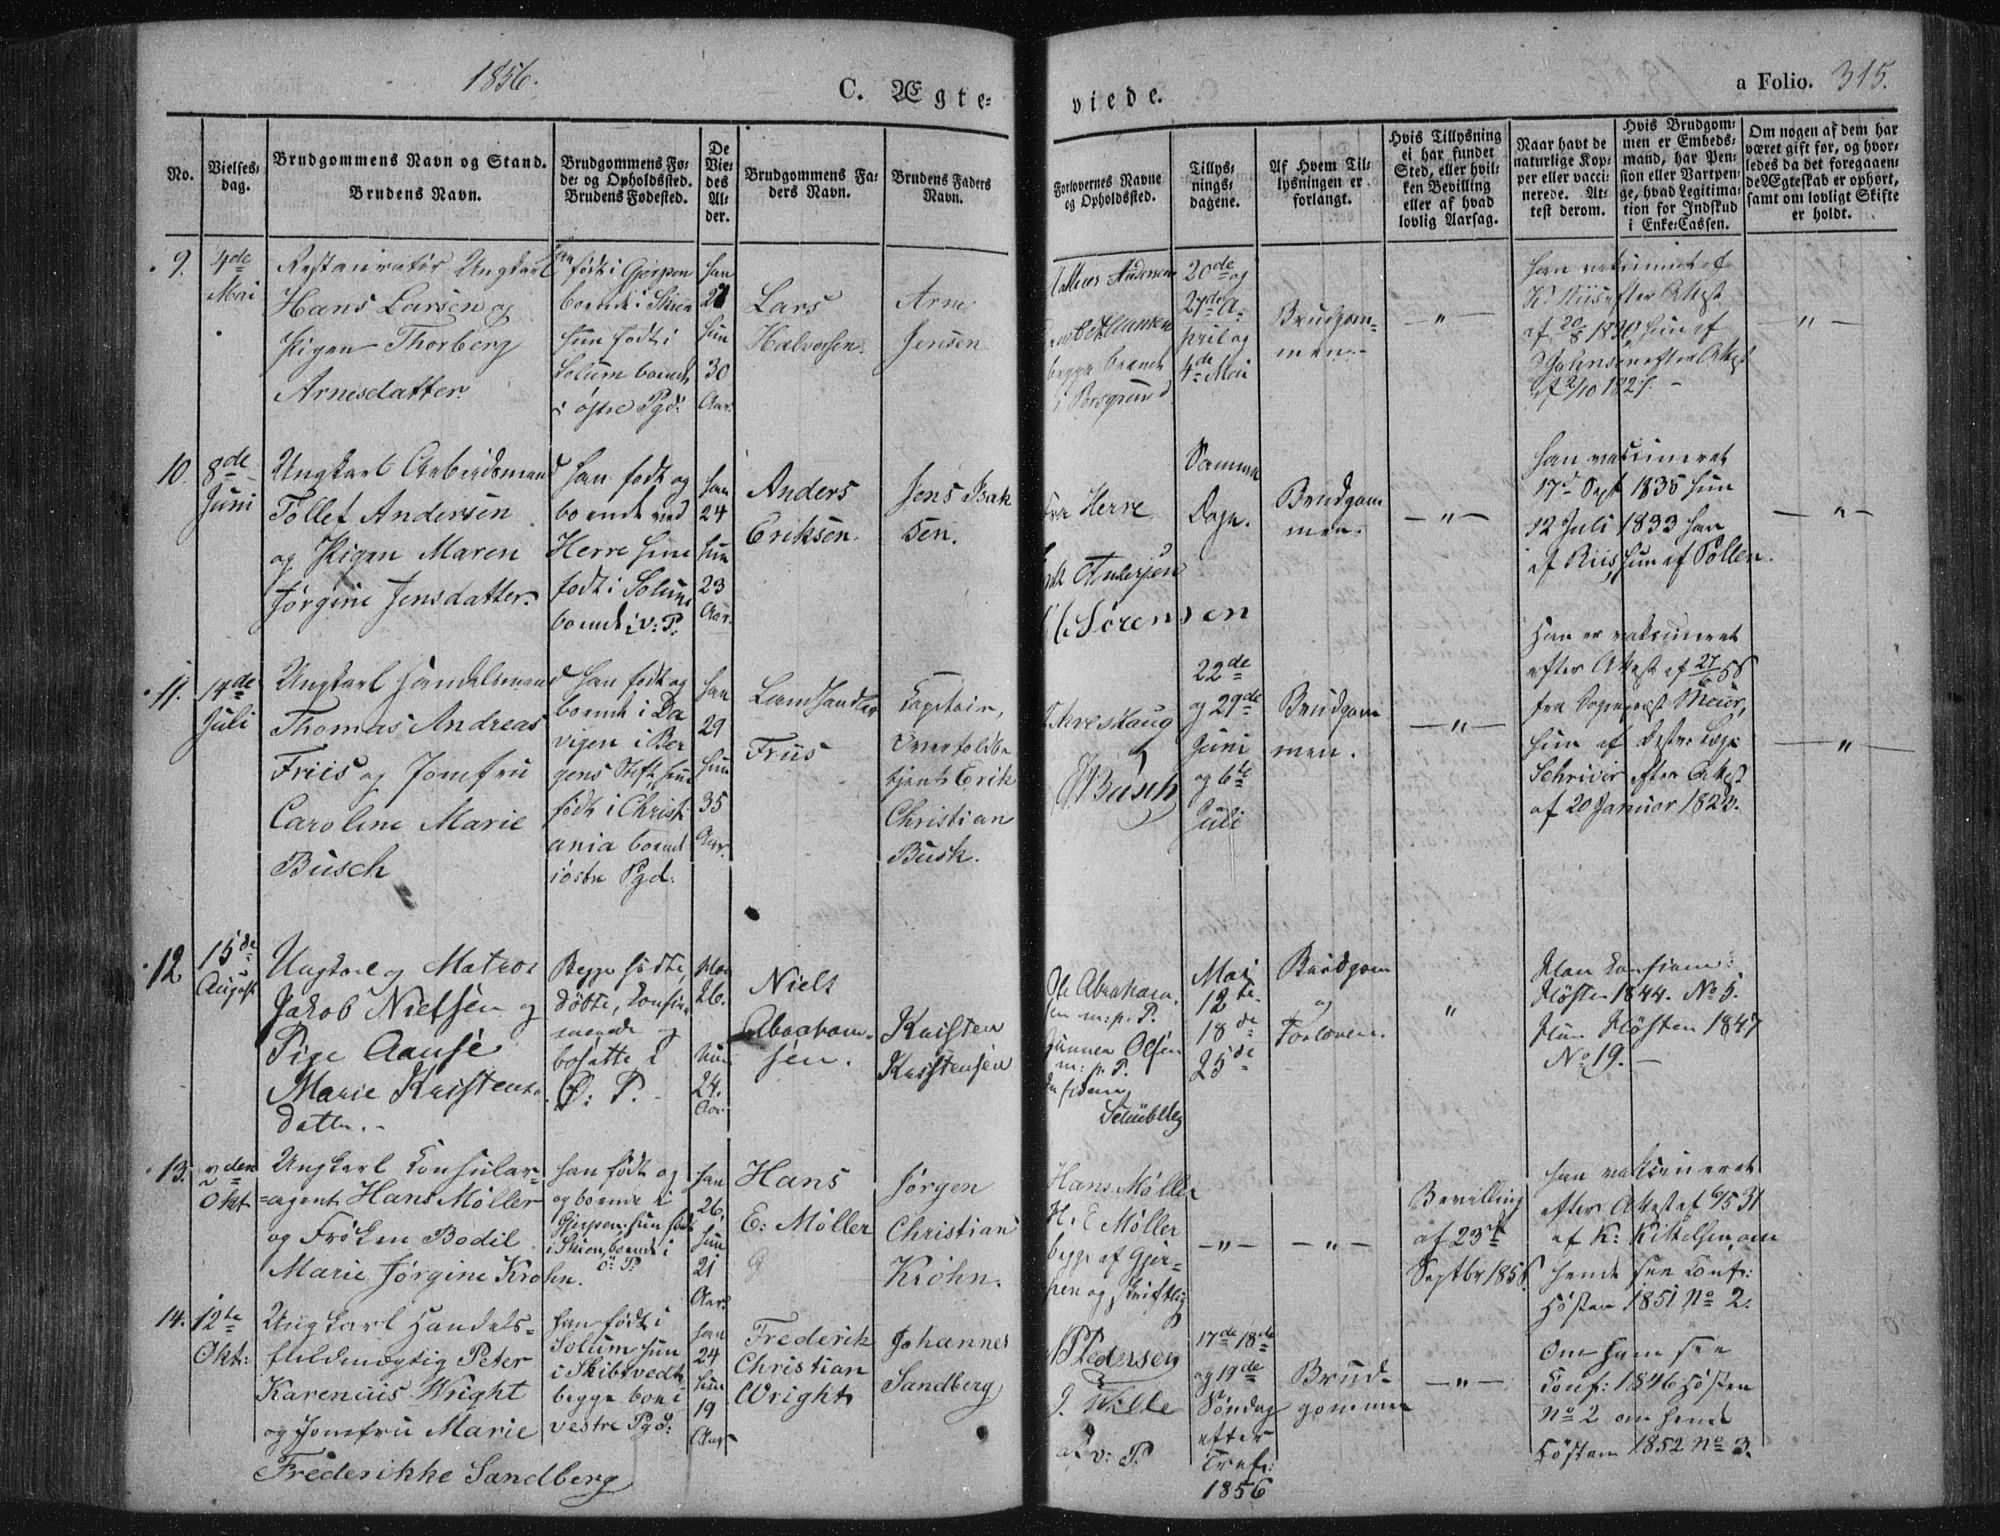 1856.
C. Ægte-
viede.
a Folio. 315.
No.
Vielses-
dag.
Brudgommens Navn og Stand.
Brudens Navn.
Brudgommens Fø-
de- og Opholdssted.
Brudens Fødested.
De
Vie-
des
Al-
der.
Brudgommens Fa-
ders Navn.
Brudens Faders
Navn.
Forlovernes Navne
og Opholdssted.
Tillys-
nings-
dagene.
Af Hvem Til-
lysningen er
forlangt.
Hvis Tillysning
ei har fundet
Sted, eller hvil-
ken Bevilling
eller af hvad
lovlig Aarsag.
Naar havt de
naturlige Kop-
per eller vacci-
nerede. At-
test derom.
Hvis Brudgom-
men er Embeds-
mand, har Pen-
sion eller Vartpen-
ge, hvad Legitima-
tion for Indskud
i Enke-Cassen.
Om nogen af dem har
været gift før, og hvor-
ledes da det foregaaen-
de Ægteskab er ophørt,
samt om lovligt Skifte
er holdt.
9.
4de
Mai
Restauratør Ungkarl
Hans Larsen og
Pigen Thorberg
Arnesdatter.
født i Gjerpen
boende i Skien
hun født i
Solum boende
i østre Pgd:
han
hun
30
Aar.
Lars
Halvorsen.
Arne
Jensen
Andersen
begge boende
i Porsgrund
20de og
27de A-
pril og
4de Mai
Brudgom-
men.
— " —
han vaksineret af
K. Riis efter Attest
af 1830, hun af
Johnsen efter Attest
af 2/10 1827. –
— " —
10.
8de
Juni
Ungkarl Arbeidsmand
Tollef Andersen
og Pigen Maren
Jørgine Jensdatter.
han født og
boende ved
Herre hun
født i Solum
boende i v: P.
han
24
hun
23
Aar.
Anders
Eriksen.
Jens Isak
sen.
Herre
Andersen
Sørensen
Samme
Dage.
Brudgom
men.
— " —
han vaccineret
17de Sept 1835 hun
12 Juli 1833 han
af Riis, hun af Pollen.
— " —
11.
14de
Juli
Ungkarl Handelsmand
Thomas Andreas
Friis og Jomfru
Caroline Marie
Busch
han født og
boende i Da
vigen i Ber
gens Stift hun
født i Christi
ania boende
i østre Pgd.
han
29
hun
35
Aar.
Landhandler
Friis
Capitain,
Overtoldbe
tjent Erik
Christian
Busk.
Busch
22de
og 29de
Juni
og 6te
Juli
Brudgom
men.
— " —
Han er vaksineret
efter Attest af 27/6 56
fra Sognepræst Meier,
hun af Distr: Læge
Schriver efter Attest
af 20 Januar 1822.
— " —
12
15de
August
Ungkarl og Matros
Jakob Nielsen og
Pige Aause
Marie Kristens-
datter. –
Begge fødte
døbte, konfir-
merede og
bosatte i
Ø: P. –
Han
26.
Hun
24.
Aar.
Niels
Abraham-
sen.
Kristen
Kristensen
Ole Abraham-
sen m: p. P.
Gunner Olsen
m: p. P.
in fidem
Schübeler
Mai
12te
18de
25de
Brudgom
og
Forlovere.
"
Han konfirm:
Høsten 1844. No 5.
Hun Høsten 1847
No 19. –
13.
Okt
Ungkarl Consular-
=agent Hans Møller
og Frøken Bodil
Marie Jørgine Krohn.
han født og
og boende i
Gjerpen. hun født
i Skien, boende i
ø: P.
han
26,
hun
21
Aar.
Hans
E: Møller
Jørgen
Christian
Krohn.
Hans Møller
H. E Møller
begge af Gjer-
pen og skriftlig
— " —
— " —
Bevilling
af 23de
Septbr 1856
han vaksineret
efter Attest af 6/5 31
af K: Kittelsen, om
hende see Conf:
Høsten 1851 No 2.
14.
12te
Okt:
Ungkarl Handels-
fuldmægtig Peter
Karenius Wright
og Jomfru Marie
Frederikke Sandberg
han født i
Solum hun
i Skibtvedt
begge boe i
vestre Pgd:
han
24
hun
19
Aar.
Frederik
Christian
Wright
Johannes
Sandberg
Pedersen
J. Wille
af v: P.
17de 18de
og 19de
Søndag
efter
Tref:
1856
Brud-
gommen
— " —
Om ham see
Conf: 1846 Høsten
No 2 om hende
Høsten 1852 No 3.